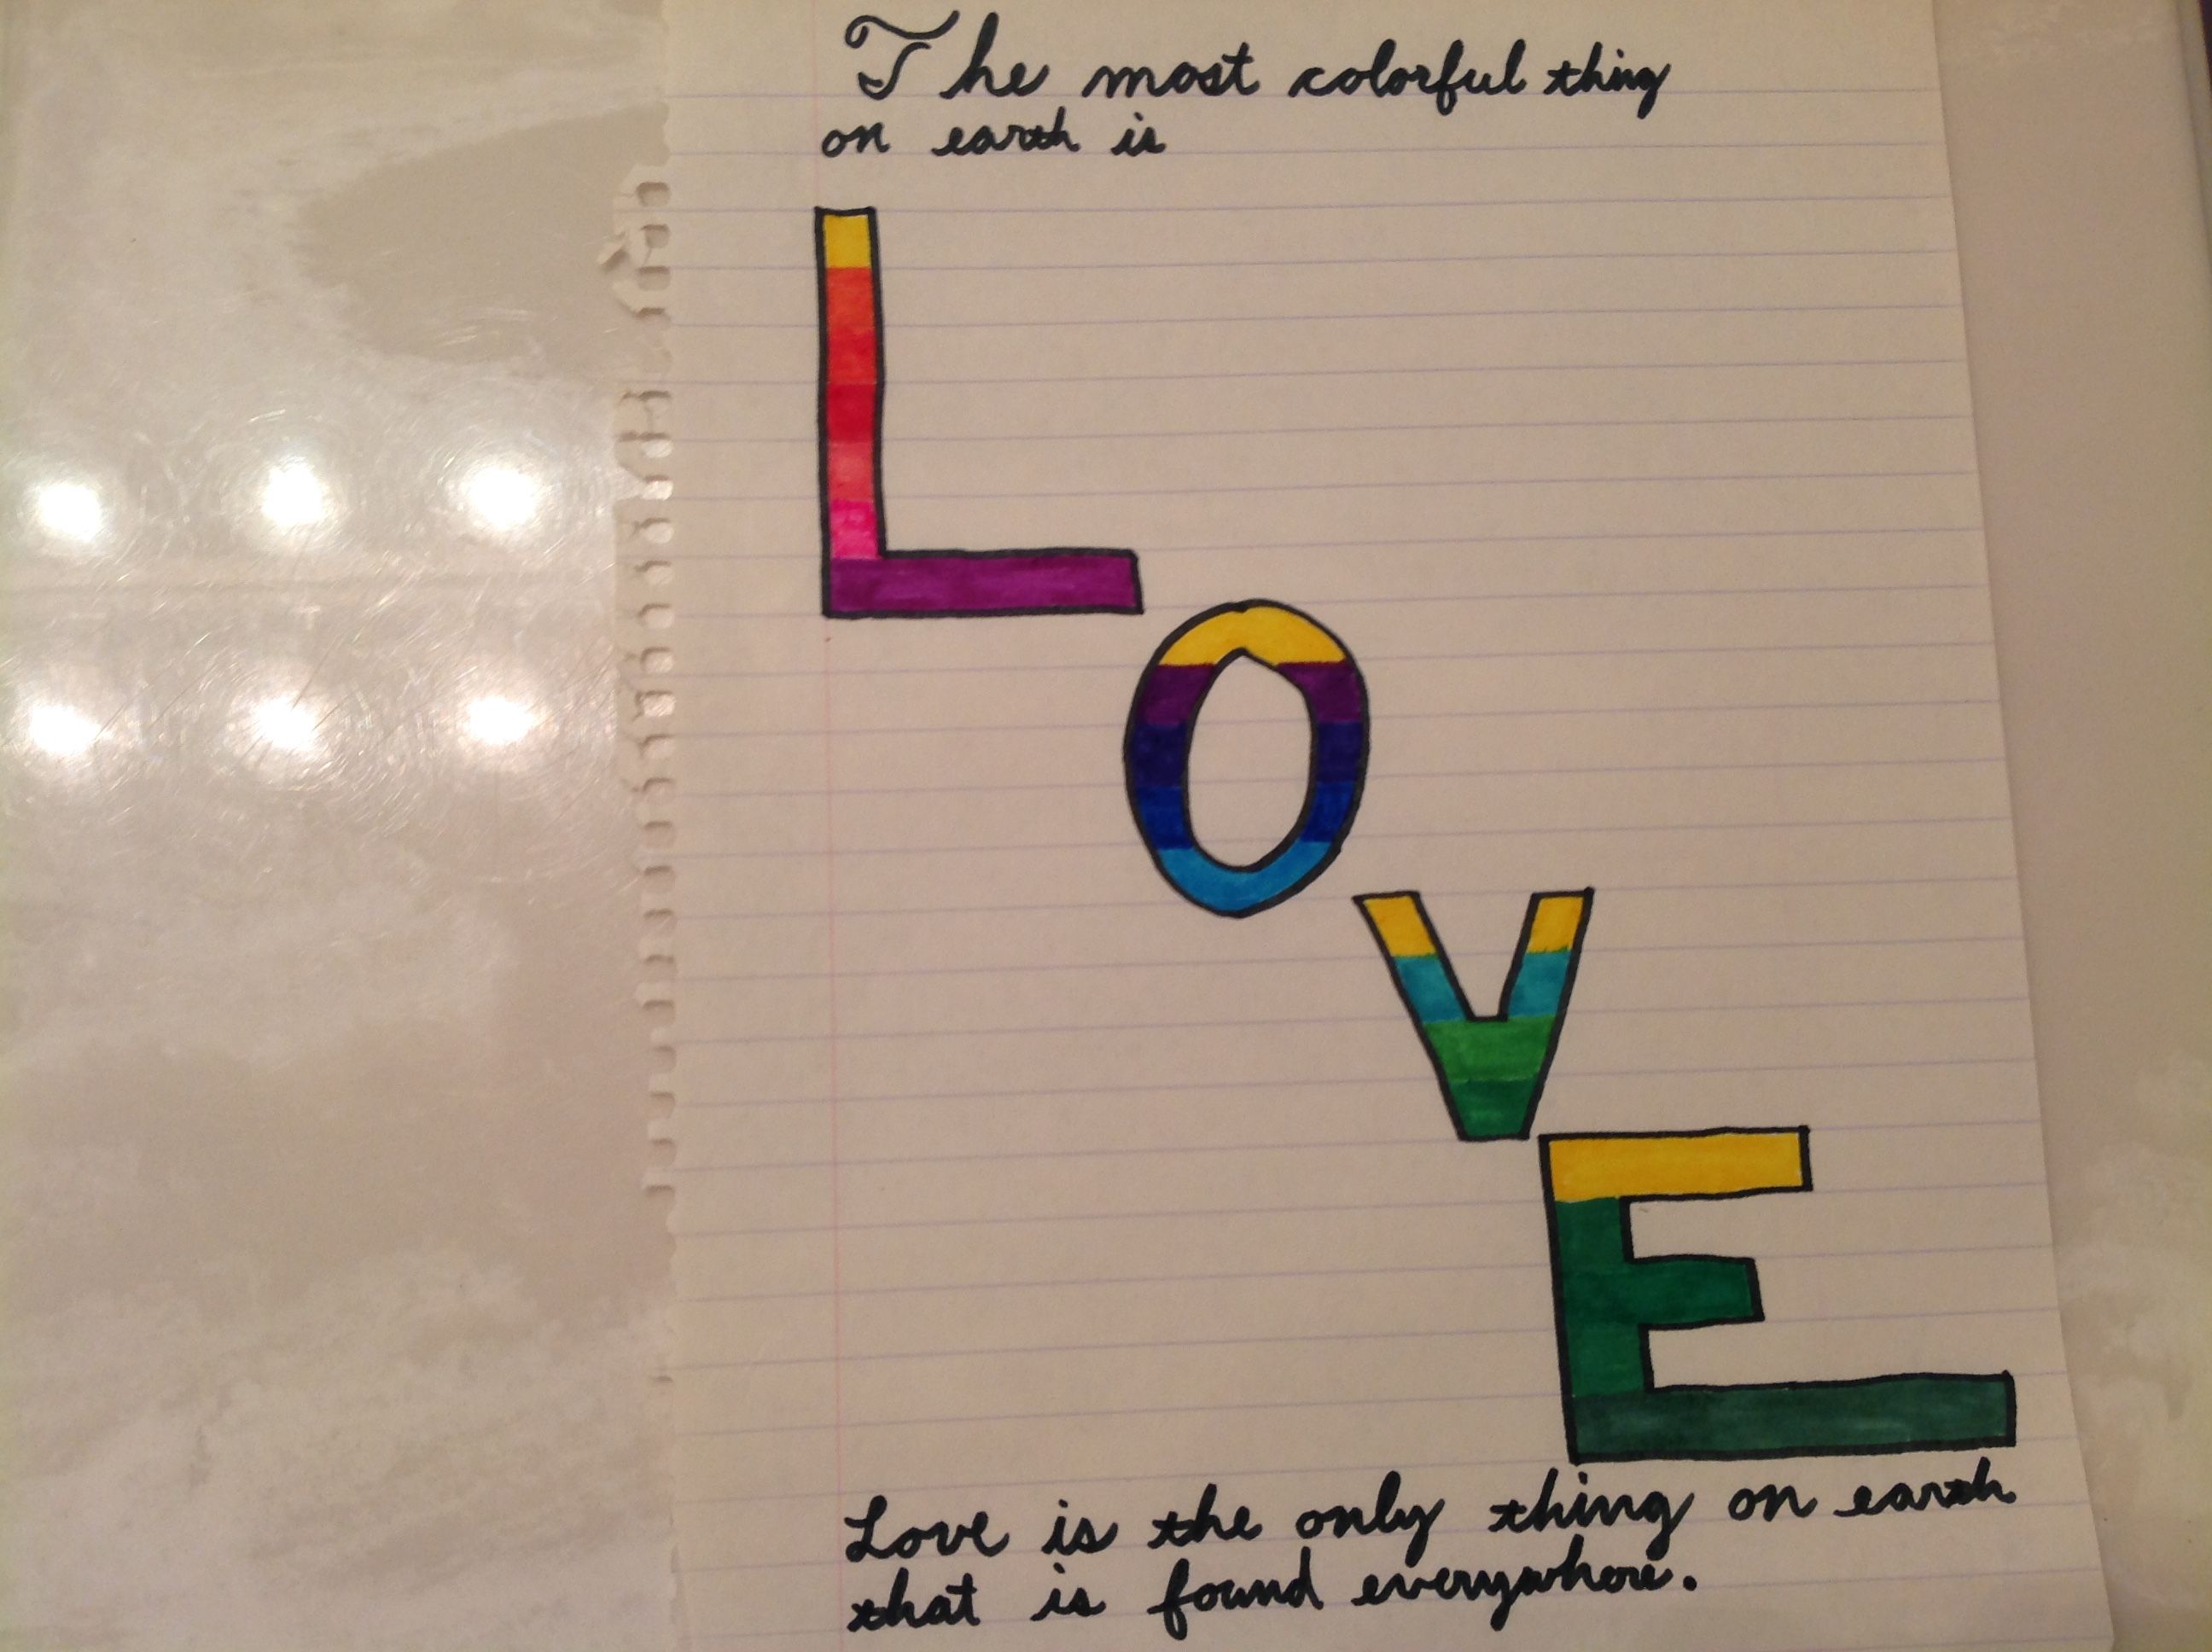 The most colorful thing
on earth is
L
O
V
E
Love is the only thing on earth
that is found everywhere.